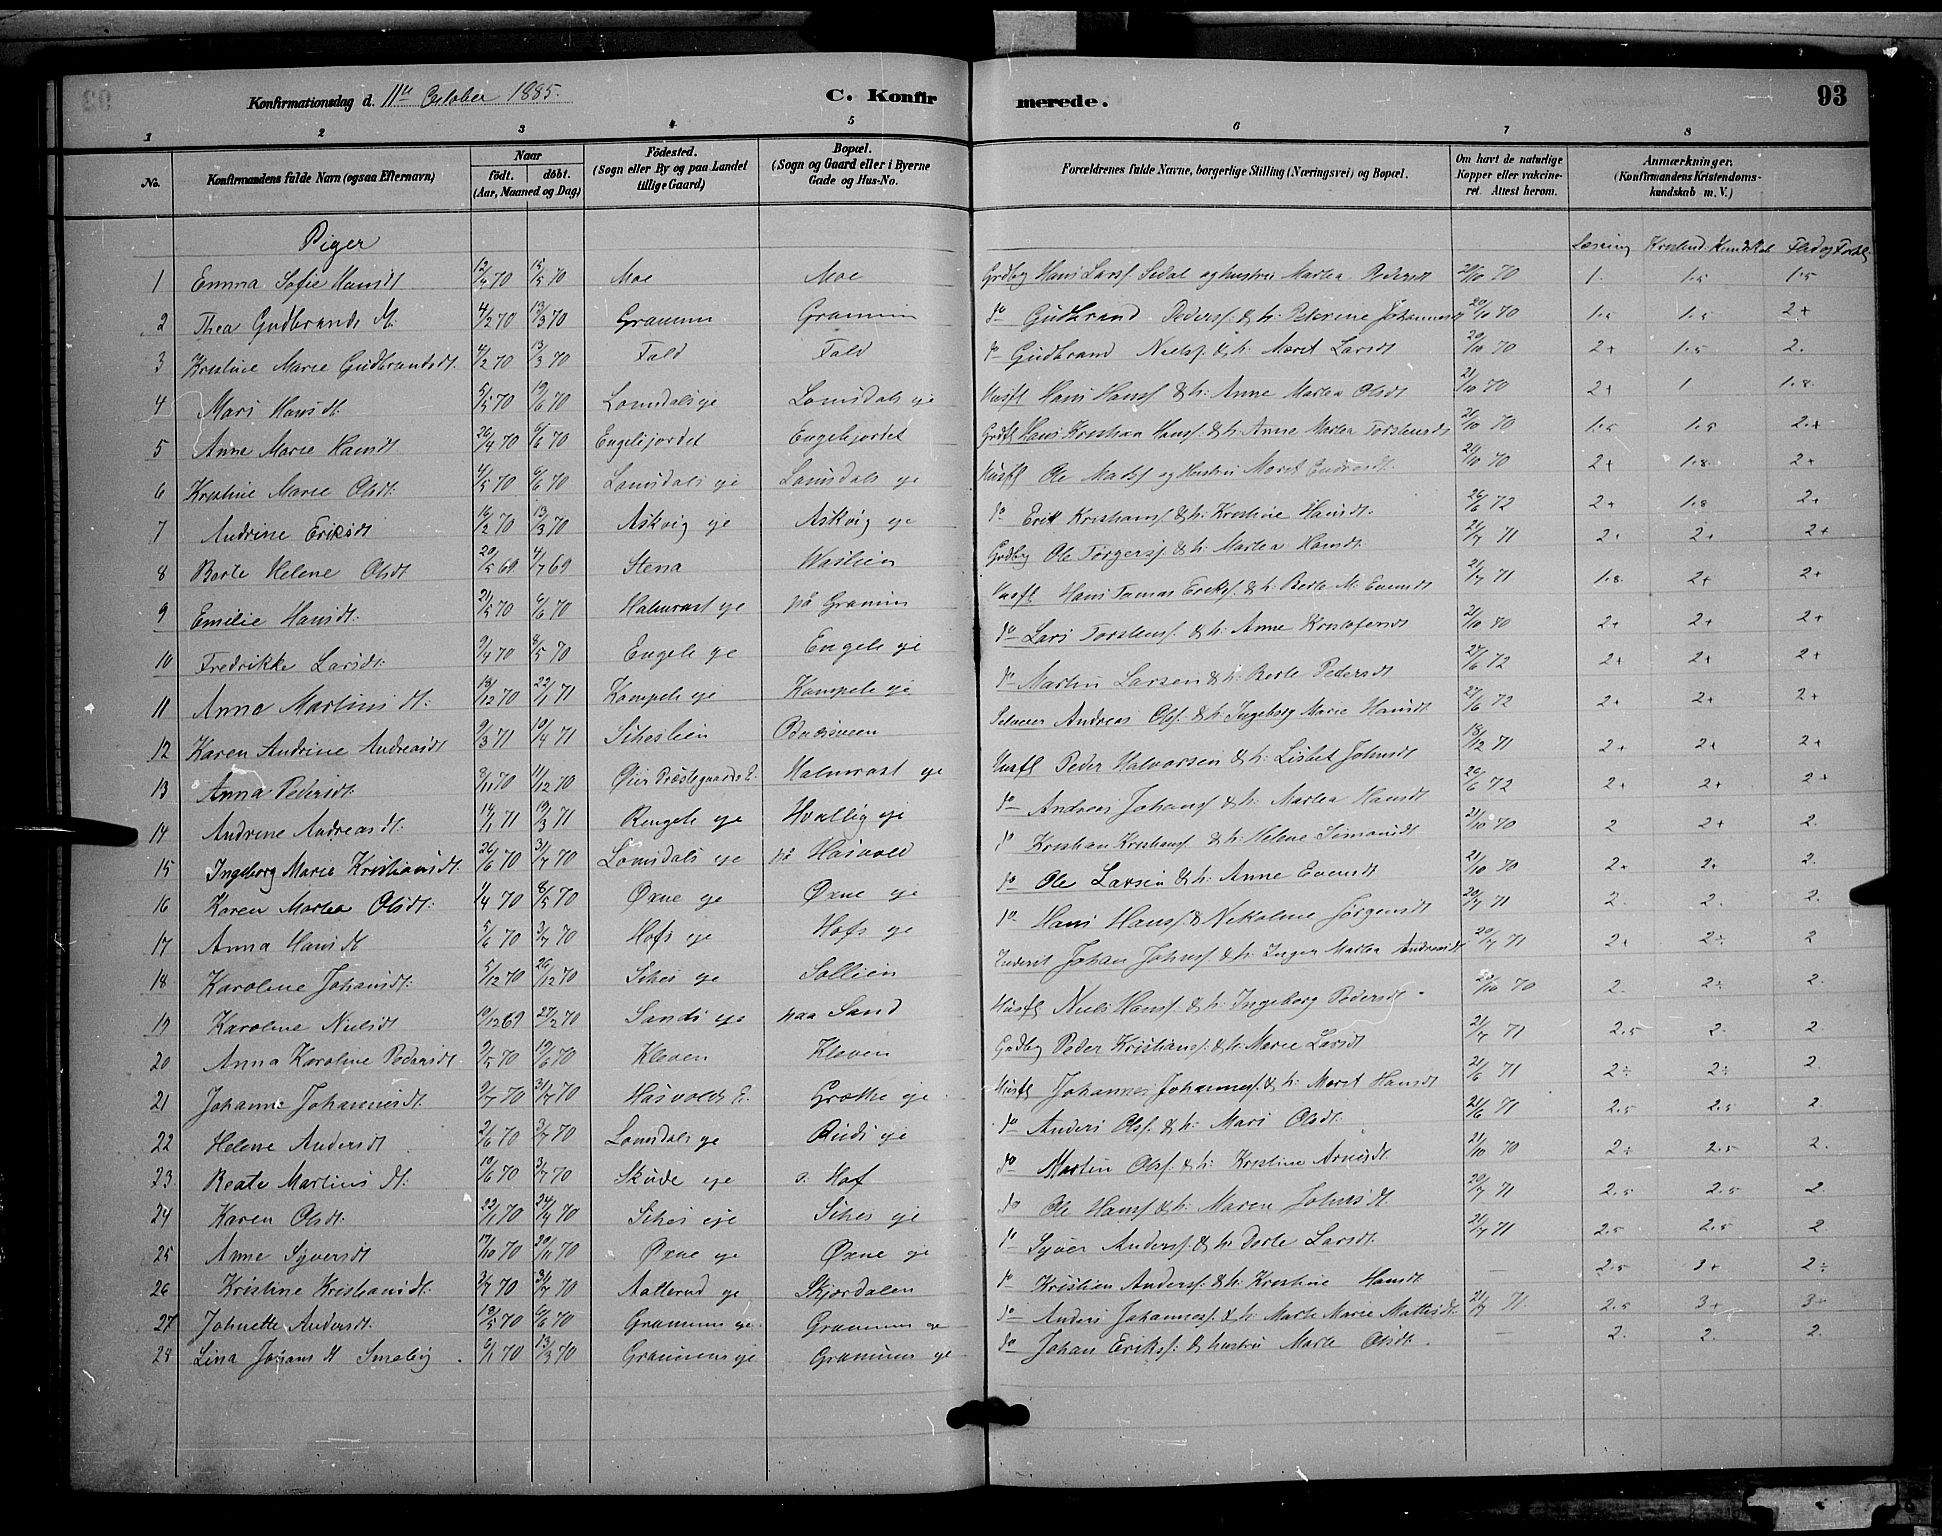 Konfirmationsdag d. 11te October 1885.
C. Konfirmerede.
93
1 2 3 4 5 6 7 8
No.
Konfirmandens fulde Navn (ogsaa Efternavn)
Naar
født. døbt.
(Aar, Maaned og Dag)
Födested.
(Sogn eller By og paa Landet
tillige Gaard)
Bopæl.
(Sogn og Gaard eller i Byerne
Gade og Hus-No.
Forældrenes fulde Navne, borgerlige Stilling (Næringsvei) og Bopæl.
Om havt de naturlige
Kopper eller vakcine-
ret. Attest herom.
Anmærkninger.
(Konfirmandens Kristendoms-
kundskab m. V.)
Piger
Læsning Kristend. Kundskab Flid og Forh.
1 Emma Sofie Hansdt. 12/4 70 15/5 70 Moe Moe Grdbr Hans Larss. og hustru Marthea Pedersdt 20/10 70 1. 1.5 1.5
2 Thea Gudbrandsdt. 4/2 70 13/3 70 Gramm Gramm do Gudbrand Peders. & h. Peterine Johannesdt 20/10 70 1.5 1.5 2+
3 Kristine Marie Gudbrandsdt. 4/2 70 13/3 70 Fald Fald do Gudbrand Nielss. & h. Maret Larsdt 20/10 70 2+ 1.5 2.
4 Mari Hansdt. 5/5 70 19/6 70 Lomsdals eje Lomsdals eje Husfl Hans Hanss. & h. Anne Marthea Olsdt 21/10 70 2+ 1 1.8
5 Anne Marie Hansdt. 26/4 70 6/6 70 Engelijordet Engelijordet Hans Kristian Hanss. & h. Anne Marthea Torstensdt 21/10 70 1.5 1.5 2+
6 Kristine Marie Olsdt. 4/5 70 6/6 70 Lomsdals eje Lomsdals eje Husfl Ole Madss. og Hustru Maret Endresdt. 21/10 70 2+ 1.8 2+
7 Andrine Eriksdt 16/2 70 13/3 70 Askvig eje Askvig eje do Erik Kristians. & h. Kristine Hansdt. 26/6 72 2+ 1.8 2+
8 Berte Helene Olsdt 20/5 69 4/7 69 Stena Grdbr Ole Torgerss. & h. Marthea Hansdt. 21/7 71 2+ 2+ 2+
9 Emilie Hansdt. 21/5 70 6/6 70 Halmrast eje på Gramm Husfl Hans Tomas Erikss. & h. Berte M. Evensdt 21/7 71 1.8 2+ 2+
10 Fredrikke Larsdt. 9/4 70 8/5 70 Engeli eje Engeli eje do Lars Torstens. & h. Anne Kristofersdt 21/10 70 2+ 2+ 2+
11 Anna Martinsdt. 18/12 70 22/1 71 Kampeli eje Kampeli eje do Martin Larsen & h. Berte Pedersdt 27/6 72 2+ 2+ 2+
12 Karen Andrine Andreasdt 9/3 71 10/4 71 Andreas Olss. & h. Ingeborg Marie Hansdt 27/6 72 2+ 2+ 2+
13 Anna Pedersdt. 11/12 70 Halmrast eje Husfl Peder Halvorsen & h. Lisbet Johnsdt 18/12 71 2+ 2+ 2+
14 Andrine Andreasdt. 14/1 71 19/3 71 Hvallig eje do Andreas Johans. & h. Marthea Hansdt 26/6 72 2+ 2+ 2+
15 Ingeborg Marie Kristiansdt. 26/6 70 31/7 70 Lomsdals eje på Hasvold do Kristian Kristians. & h. Helene Simensdt 21/10 70 2 2+ 2.
16 Karen Marthea Olsdt. 1/4 70 8/5 70 Øxne eje Øxne eje do Ole Larsen & h. Anne Evensdt 21/10 70 2+ 2+ 2.
17 Anna Hansdt 5/6 70 3/7 70 Hofs eje Hofs eje do Hans Hanss. & Nikoline Jørgensdt 20/7 71 2. 2. 2.
18 Karoline Johansdt. 5/12 70 26/12 70 Sollien Johan Johns. & h. Inger Marthea Andreasdt 20/7 71 2+ 2÷ 2
19 Karoline Nielsdt 19/12 69 27/2 70 Sands eje paa Sand Husfl Niels Hanss. & h. Ingeborg Pedersdt. 21/10 70 2. 2÷ 2.
20 Anna Karoline Pedersdt. 9/5 70 19/6 70 Kleven Kleven Grdbr Peder Kristians. & h. Marie Larsdt 21/7 71 2.5 2. 2.
21 Johanne Johannesdt. 9/7 70 31/7 70 Hasvolds E. Grøthe eje Husfl Johannes Johanness. & h. Maret Hansdt 21/6 71 2÷ 2÷ 2.
22 Helene Andersdt 2/6 70 3/7 70 Lomsdals eje Ruds eje do Anders Olss. & h. Mari Olsdt. 21/6 71 2.5 2.5 2.
23 Beate Martinsdt. 10/6 70 3/7 70 Skøde eje ø. Hof do Martin Olss. & h. Kristine Arnesdt. 21/10 70 2÷ 2.5 2.
24 Karen Olsdt. 22/1 70 24/4 70 do Ole Hanss. & h. Maren Johnsdt 20/7 71 2.5 2.5 2.
25 Anne Syversdt 17/10 70 20/11 70 Øxne eje Øxne eje do Syver Anderss. & h. Dorte Larsdt. 21/7 71 2.5 2.5 2.
26 Kristine Kristiansdt. 3/7 70 31/7 70 Aallerud eje Skjærdalen do Kristian Anderss. & h. Kristine Hansdt. — 2.5 3+ 2÷
27 Johnette Andersdt. 13/5 70 6/6 70 Gramms eje Gramms eje do Anders Johanness. & h. Marte Marie Mattisdt. 21/7 71. 2.5 3+ 3+
28 Lina Johansdt Smeby. 6/1 70 13/3 70 Gramms eje Gramms eje do Johan Erikss. & hustru Marte Olsdt. — 2. 2. 2.